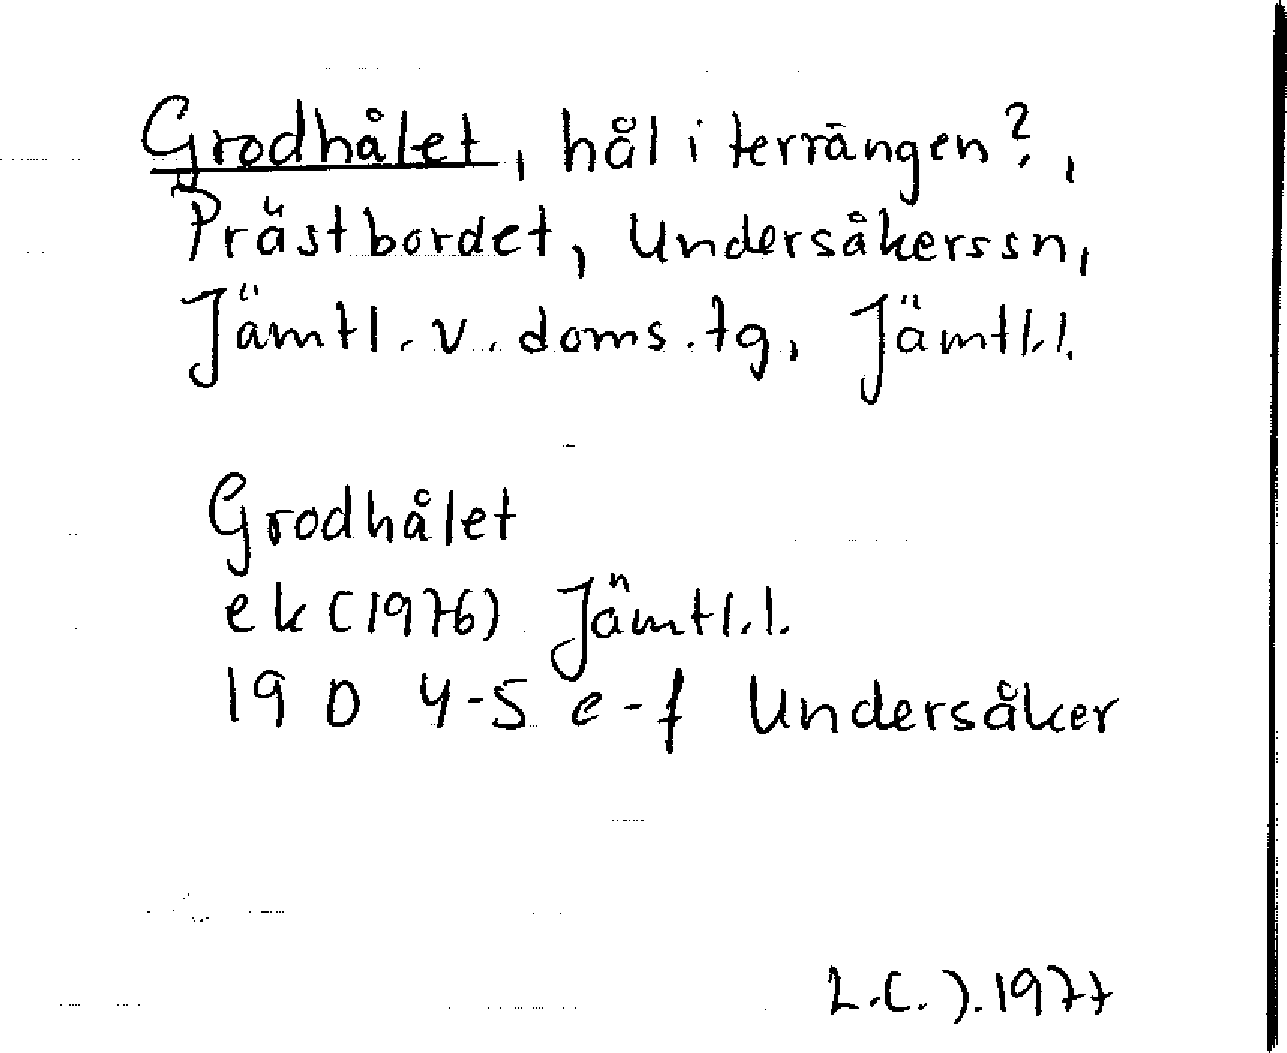 Grodhålet, hål i terrängen?,
Prästbordet, Undersåkerssn,
Jämtl. v. doms. tg, Jämtl.l.
Grodhålet
ek (1976) Jämtl.l.
19 D 4-5 e-f Undersåker
L.C.J. 1977